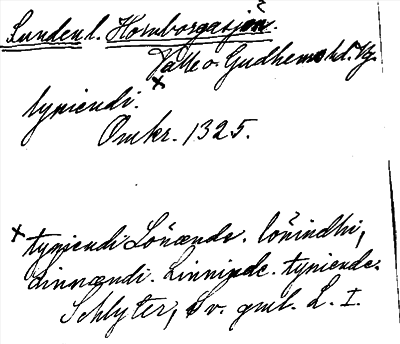 Lunden l. Hornborgasjön.
Valle o. Gudhems hd. Vg.
lyniendi. x
Omkr. 1325.
x tyniendi Lönænde. lönindhi,
Linnændi. Linninde. tyniende.
Schlyter, Sv. gml. L. I.